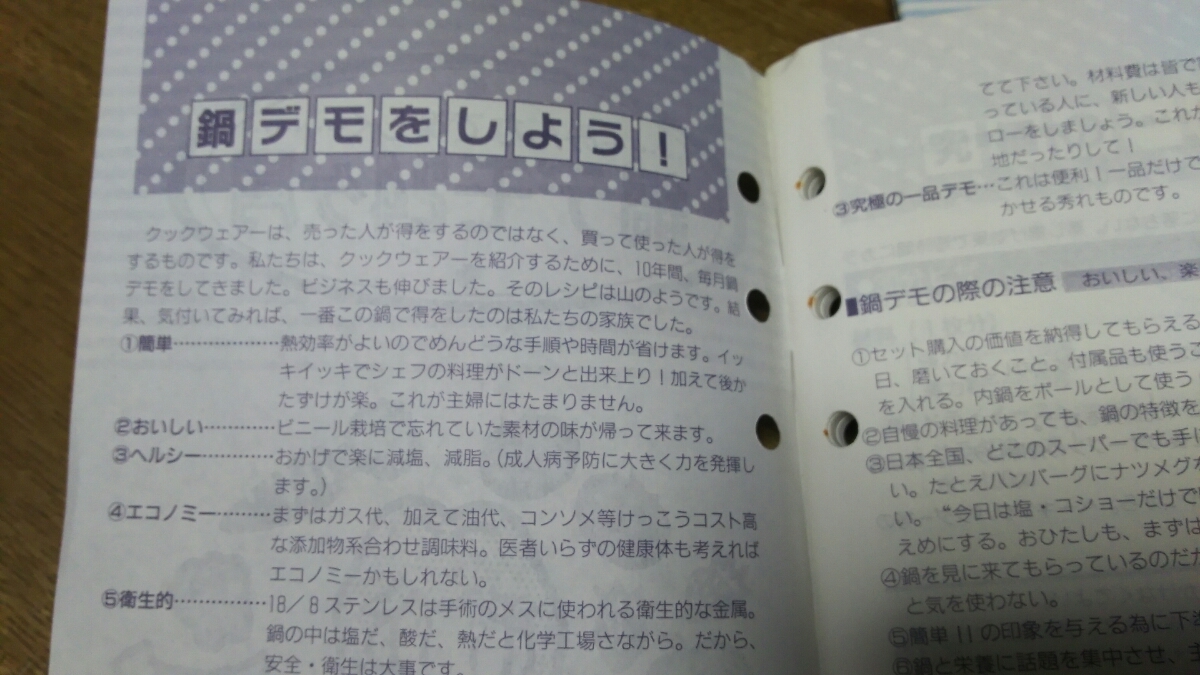 鍋デモをしよう!
クックウェアーは、売った人が得をするのではなく、買って使った人が得を
するものです。私たちは、クックウェアーを紹介するために、10年間、毎月鍋
デモをしてきました。ビジネスも伸びました。そのレシピは山のようです。結
果、気付いてみれば、一番この鍋で得をしたのは私たちの家族でした。
①簡単……………熱効率がよいのでめんどうな手順や時間が省けます。イッ
キイッキでシェフの料理がドーンと出来上り!加えて後か
たずけが楽。これが主婦にはたまりません。
②おいしい…………ビニール栽培で忘れていた素材の味が帰って来ます。
③ヘルシー…………おかげで楽に減塩、減脂。(成人病予防に大きく力を発揮し
ます。)
④エコノミー………まずはガス代、加えて油代、コンソメ等けっこうコスト高
な添加物系合わせ調味料。医者いらずの健康体も考えれば
エコノミーかもしれない。
⑤衛生的……………18/8ステンレスは手術のメスに使われる衛生的な金属。
鍋の中は塩だ、酸だ、熱だと化学工場さながら。だから、
安全・衛生は大事です。
てて下さい。材料費は皆で
っている人に、新しい人も
ローをしましょう。これが
地だったりして!
③究極の一品デモ…これは便利!一品だけで
かせる秀れものです。
鍋デモの際の注意 おいしい、楽
①セット購入の価値を納得してもらえる
日、磨いておくこと。付属品も使うこ
を入れる。内鍋をボールとして使う
②自慢の料理があっても、鍋の特徴を
③日本全国、どこのスーパーでも手に
い。たとえハンバーグにナツメグを
い。“今日は塩・コショーだけで
えめにする。おひたしも、まずは
④鍋を見に来てもらっているのだか
と気を使わない。
⑤簡単!!の印象を与える為に下準
⑥鍋と栄養に話題を集中させ、ま